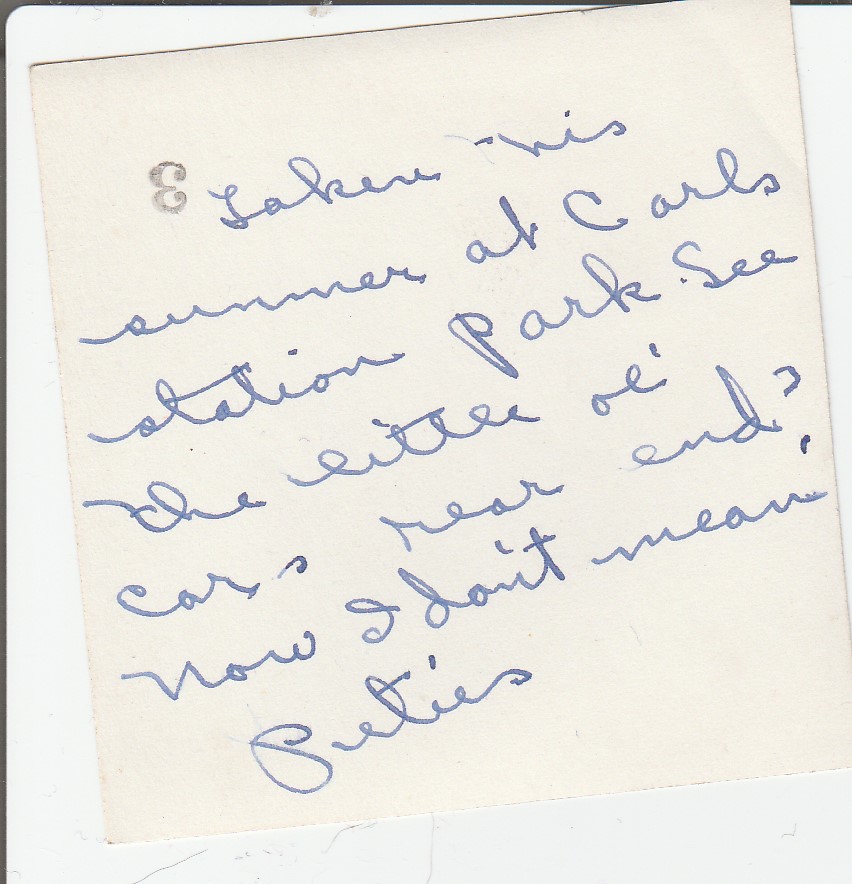 3 Taken this
summer at Carls
station Park. See
the little ol'
cars rear end?
Now I don't mean
Peties